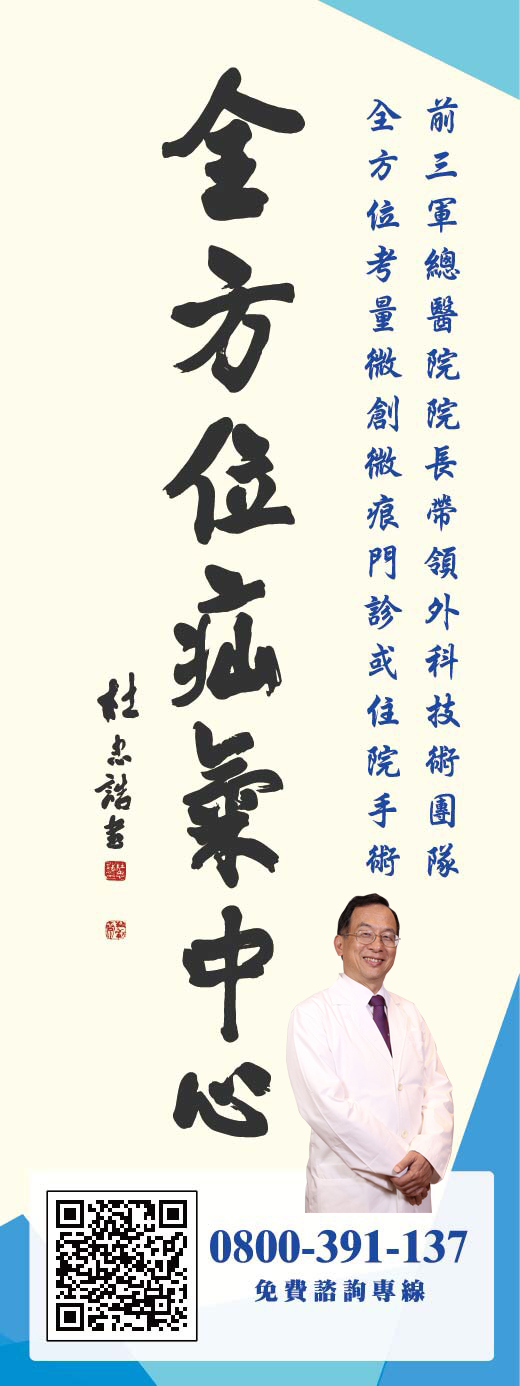 前三軍總醫院院長帶領外科技術團隊
全方位考量微創微痕門診或住院手術
全方位疝氣中心
杜忠誥書
0800-391-137
免費諮詢專線